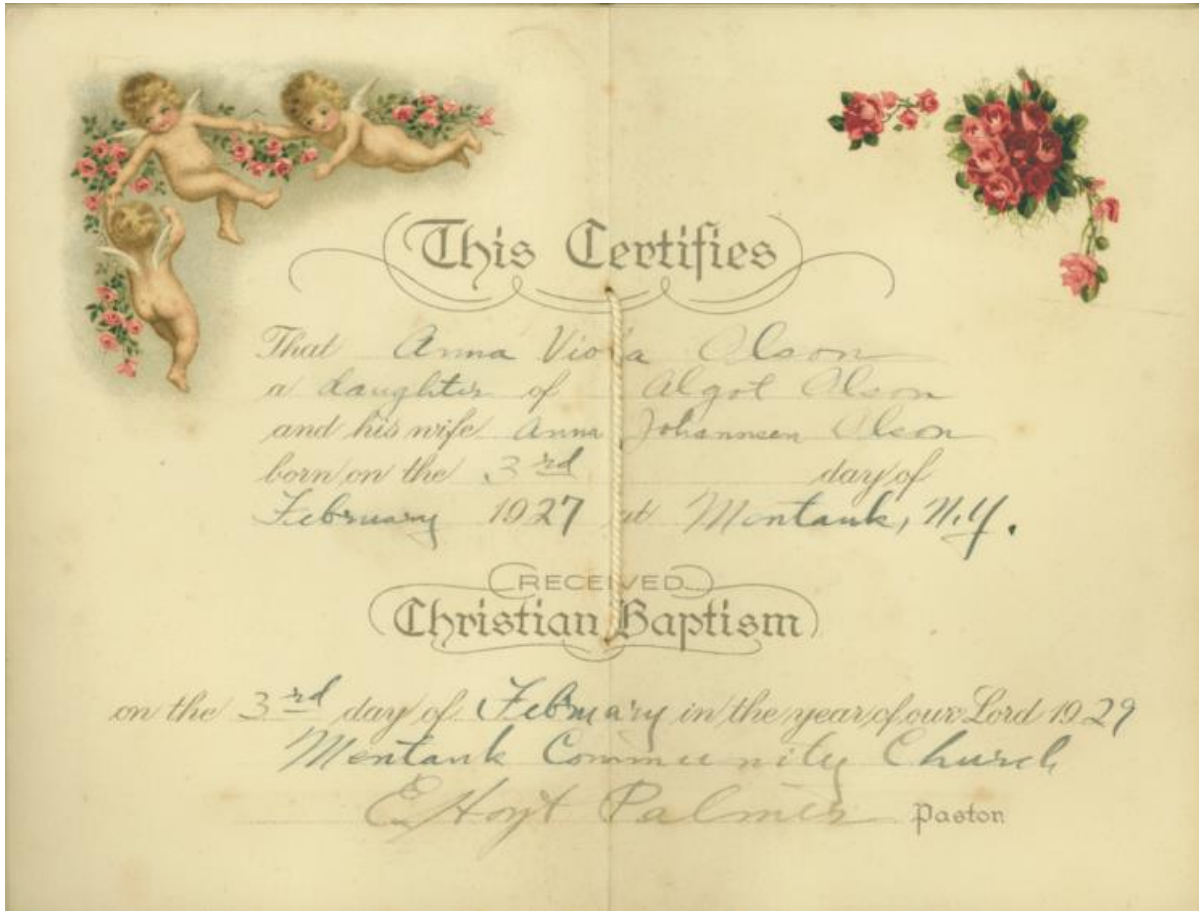 This Certifies
That Anna Viola Olson
a daughter of Algot Olson
and his wife Anna Johannsen Olson
born on the 3rd day of
February 1927 at Montauk, N.Y.
RECEIVED
Christian Baptism
on the 3rd day of February in the year of our Lord 1929
Montauk Community Church
E Hoyt Palmer Pastor